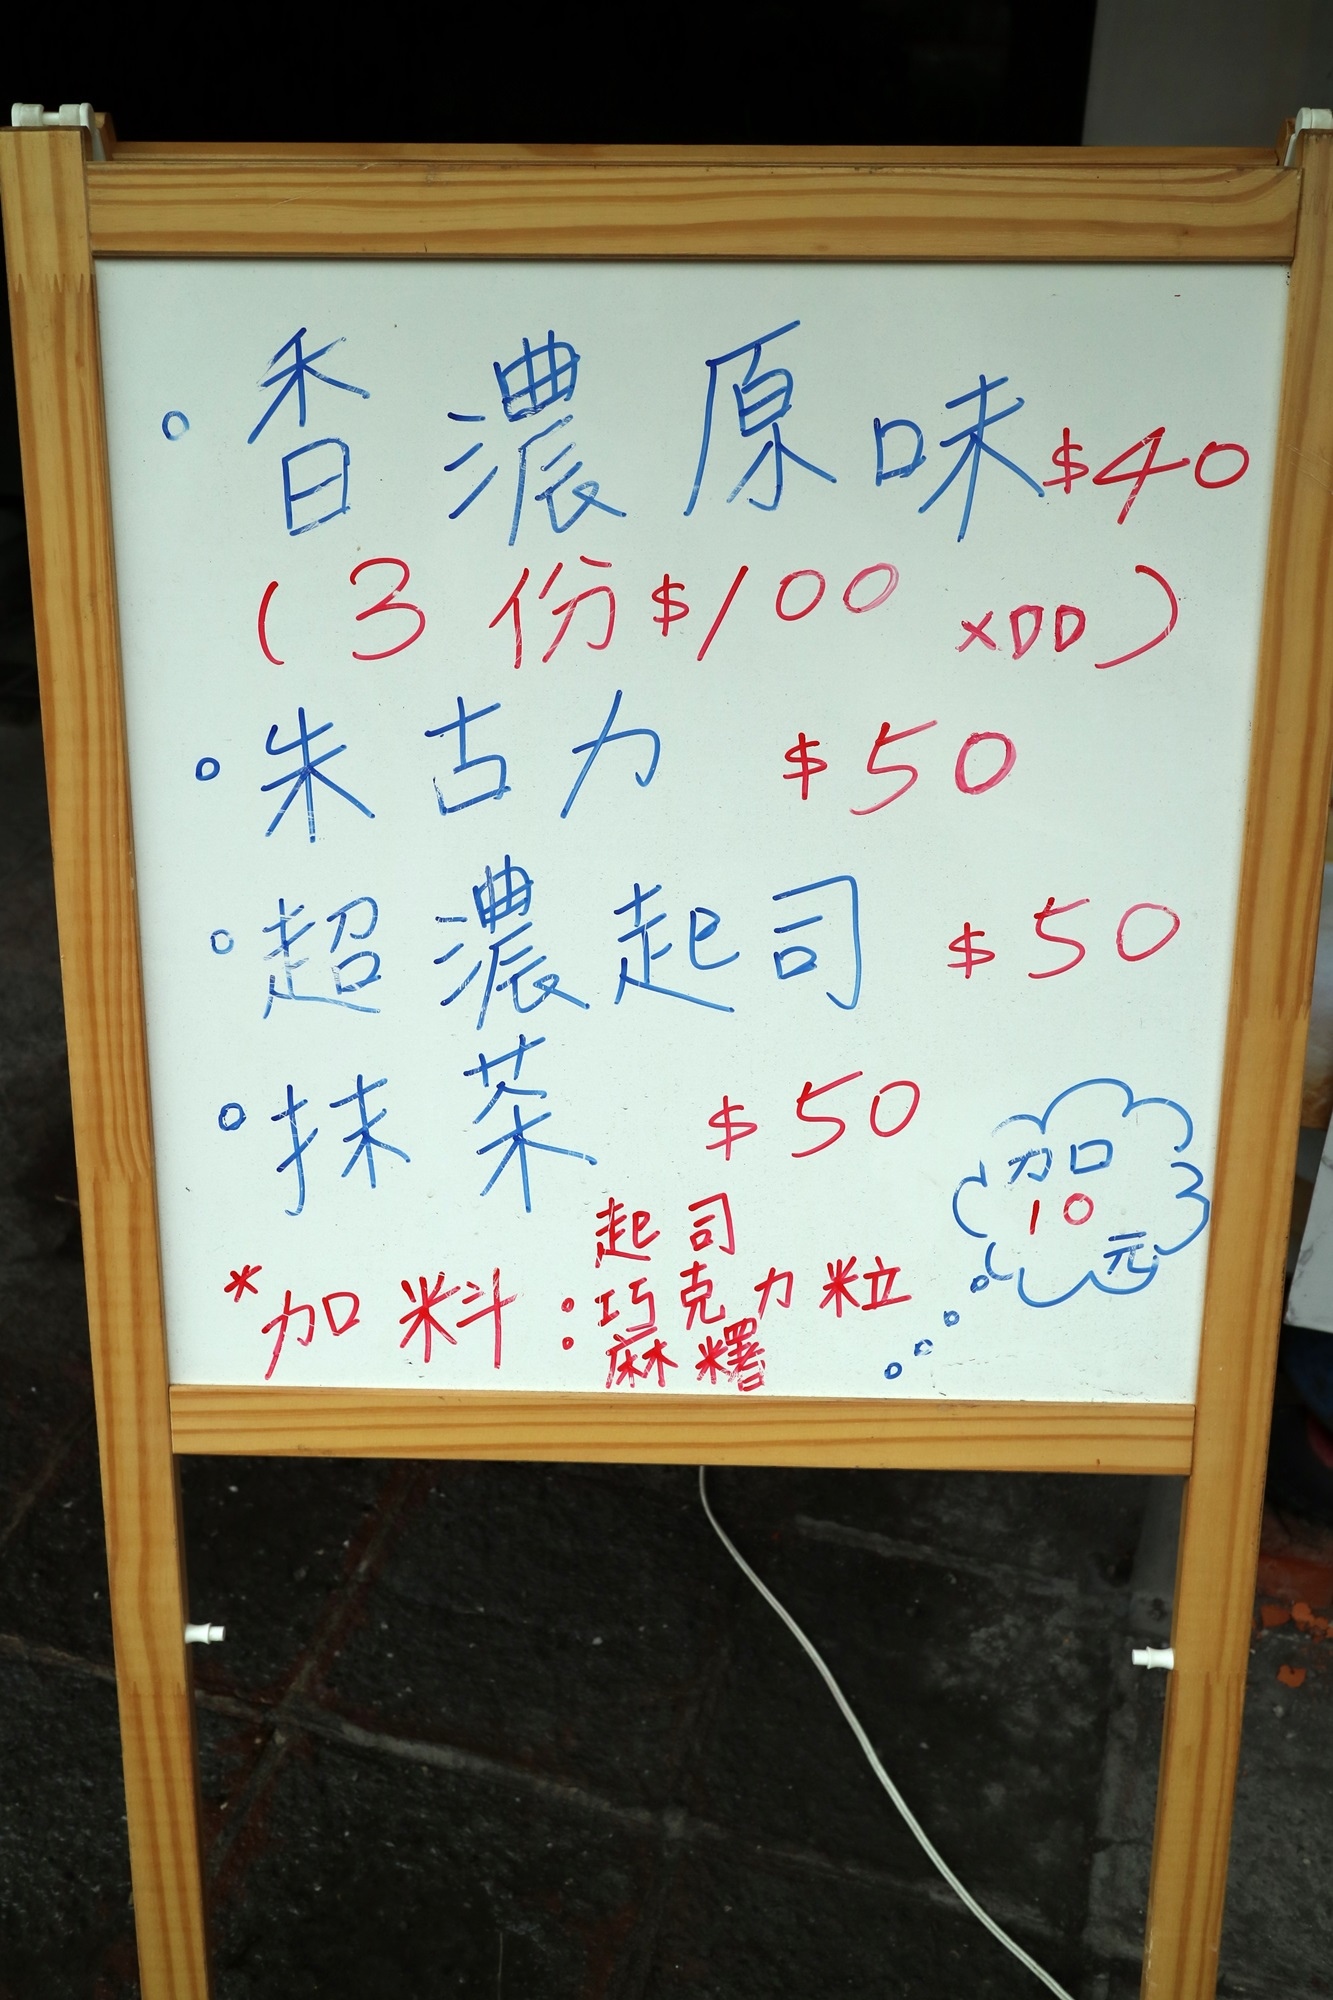 。香濃原味$40
(3份$100 xDD)
。朱古力 $50
。超濃起司 $50
。抹茶 $50
*加料:起司
巧克力粒
麻糬
加
10
元